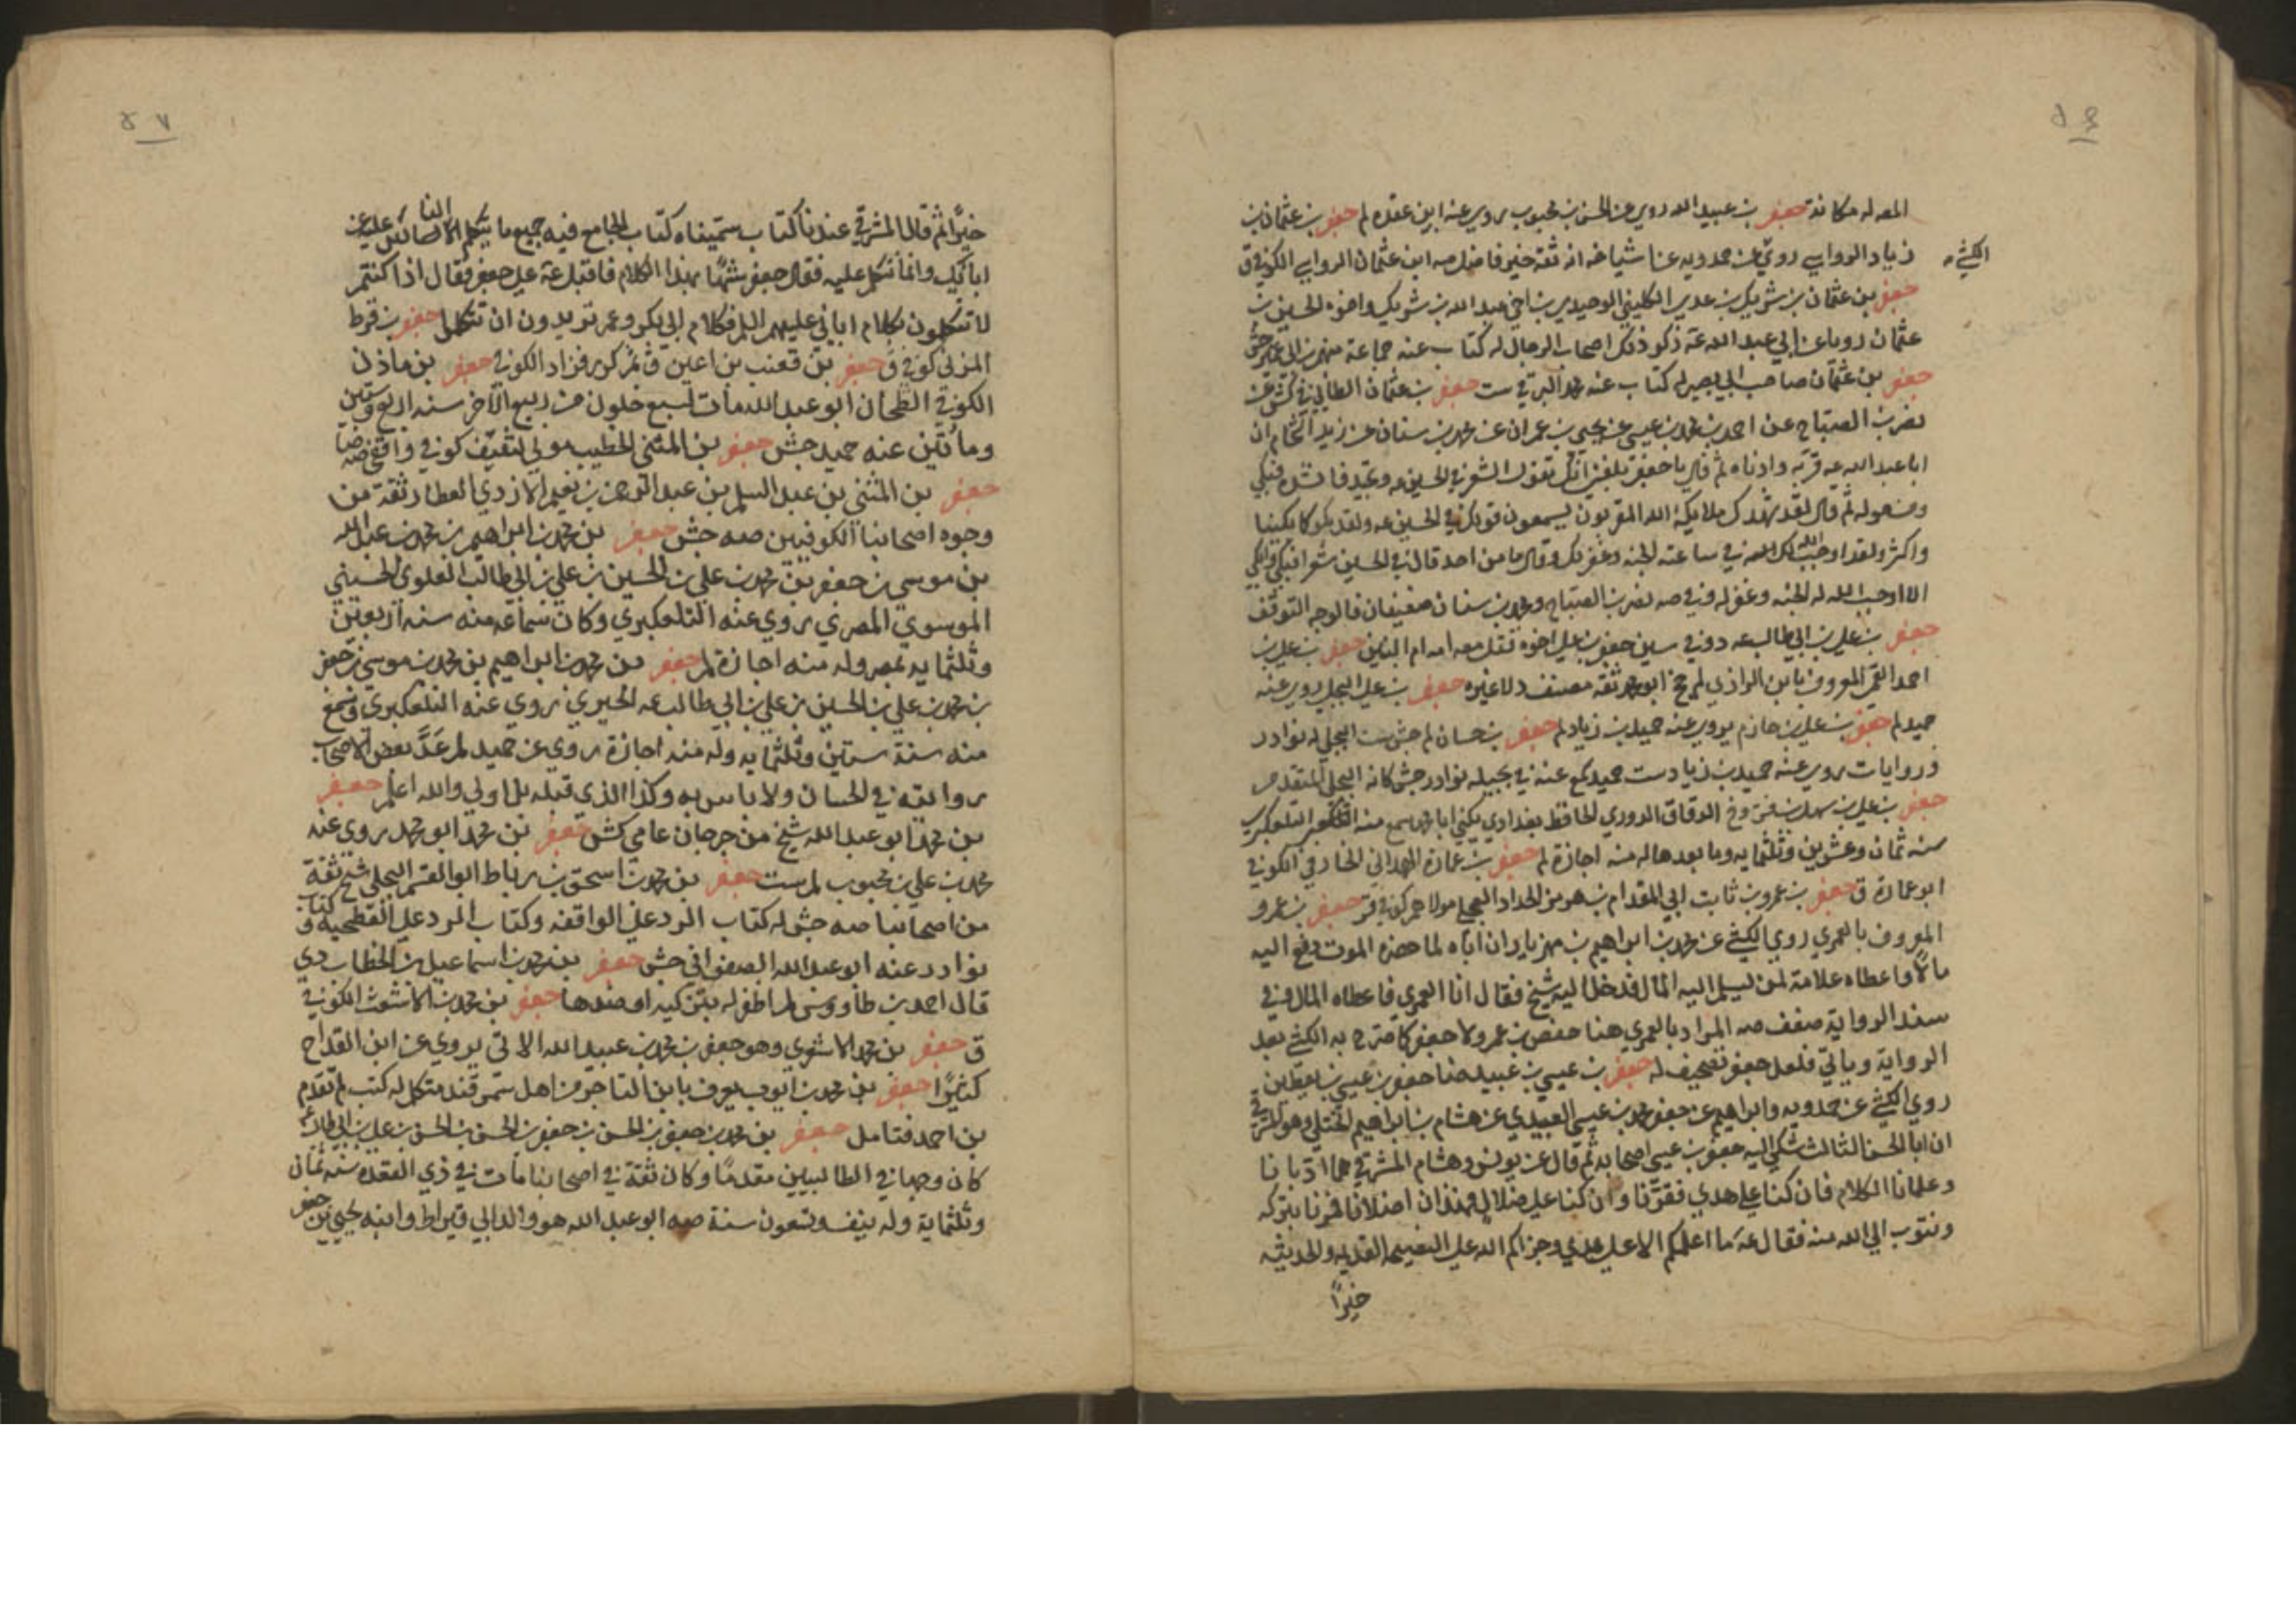 المعدله مكانة جعفر بن عبيد الله روى عن الحسن بن محبوب يروى عنه ابن عقده لم جعفر بن عثمان بن
زياد الرواسي روى عن حمدويه عن اشياخه انه ثقة خير فاضل صه ابن عثمان الرواسي الكوفي ق
الكشي
جعفر بن عثمان بن شريك بن عدي الكلبي الوحيدي بن اخي عبد الله بن شريك واخوه الحسين بن
عثمان رويا عن ابي عبد الله عه ذكر ذلك اصحاب الرجال له كتاب عنه جماعة منهم ابن ابي عمير جش
جعفر بن عثمان صاحب ابي بصير له كتاب عنه محمد البرقي ست جعفر بن عثمان الطائي في كش عن
نصر بن الصباح عن احمد بن محمد بن عيسى عن يحيى بن عمران عن محمد بن سنان عن زيد الشحام ان
ابا عبد الله عه قربه وادناه ثم قال يا جعفر بلغني انك تقول الشعر في الحسين عه وتجيد فانشده فبكى
ومن حوله ثم قال لقد شهدك ملايكة الله المقربون يسمعون قولك في الحسين عه ولقد بكوا كما بكينا
واكثر ولقد اوجب الله لك في ساعته الجنه وغفر لك وقال ما من احد قال في الحسين شعرا فبكى وابكى
الا اوجب الله له الجنه وغفر له وفي صه نصر بن الصباح ومحمد بن سنان ضعيفان فالوجه التوقف
جعفر بن علي بن ابي طالب عه وفي سين جعفر بن علي اخوه قتل معه امه ام البنين جعفر بن علي بن
احمد القمي المعروف بابن الرازي لم جخ ابو محمد ثقه مصنف د لا غيره جعفر بن علي البجلي روى عنه
حميد لم جعفر بن علي بن حازم يروى عنه حميد بن زياد لم جعفر بن علي بن حسان لم جش ست البجلي له نوادر
وروايات يروى عنه حميد بن زياد ست حميد عنه في بجيله نوادر جش كانه البجلي المتقدم
جعفر بن علي بن سهل بن فروخ الدقاق الدوري الحافظ بغدادي يكنى ابا محمد سمع منه التلعكبري
سنه ثمان وعشرين وثلثمايه وما بعدها له منه اجازة لم جعفر بن عمارة الهمداني الخارفي الكوفي
ابو عمارة ق جعفر بن عمرو بن ثابت ابي المقدام بن هرمز الحداد العجلي مولاهم كوفي ق جعفر بن عمرو
المعروف بالعمري روى الكشي عن محمد بن ابراهيم بن مهزيار ان اباه لما حضره الموت دفع اليه
مالا واعطاه علامة لمن يسلم اليه المال فدخل اليه شيخ فقال انا العمري فاعطاه المال وفي
سند الرواية ضعف صه المراد بالعمري هنا حفص بن عمرو لا جعفر كما صرح به الكشي بعد
الرواية وياتي فلعل جعفر تصحيف له جعفر بن عيسى بن عبيد هنا جعفر بن عيسى بن يقطين
روى الكشي عن حمدويه وابراهيم عن جعفر محمد بن عيسى العبيدي عن هشام بن ابراهيم الختلي وهو المشرقي
ان ابا الحسن الثالث شكى اليه جعفر بن عيسى اصحابه ثم قال عن يونس وهشام المشرقي هما ادبانا
وعلمانا الكلام فان كنا على هدى ففزنا وان كنا على ضلال فهذان اضلانا فمرنا بتركه
ونتوب الى الله منه فقال عه ما اعلمكم الا على هدى وجزاكم الله على النصيحة القديمه والحديثه
خيرا
٤٧
خيرا ثم قال المشرقي عندنا كتاب سميناه كتاب الجامع فيه جميع ما يتكلم الناس عليه عن
ابائك وانما نتكلم عليه فقال جعفر شبيها بهذا الكلام فاقبل عه على جعفر فقال اذا كنتم
لا تتكلمون بكلام ابائي عليهم السلم فكلام ابي بكر وعمر تريدون ان تتكلموا جعفر بن قرط
المزني كوفي ق جعفر بن قعنب بن اعين ق ذكر فزاد الكوفي جعفر بن مازن
الكوفي الطحان ابو عبد الله مات لسبع خلون من ربيع الاخر سنه اربع وستين
ومأتين عنه حميد جش جعفر بن المثنى الخطيب مولى لثقيف كوفي واقفي ضا صه
جعفر بن المثنى بن عبد السلم بن عبد الرحمن بن نعيم الازدي العطار ثقة من
وجوه اصحابنا الكوفيين صه جش جعفر بن محمد بن ابراهيم بن محمد بن عبد الله
بن موسى بن جعفر بن محمد بن علي بن الحسين بن علي بن ابي طالب العلوي الحسيني
الموسوي المصري يروي عنه التلعكبري وكان سماعه منه سنه اربعين
وثلثمايه بمصر وله منه اجازة لم جعفر بن محمد بن ابراهيم بن محمد بن موسى بن جعفر
بن محمد بن علي بن الحسين بن علي بن ابي طالب عه الحيري يروي عنه التلعكبري وسمع
منه سنة ستين وثلثمايه وله منه اجازة يروي عن حميد لم عد بعض الاصحاب
روايته في الحسان ولا باس به وكذا الذي قبله بل اولى والله اعلم جعفر
بن محمد ابو عبد الله شيخ من جرجان عامي كش جعفر بن محمد ابو محمد روى عنه
محمد بن علي بن محبوب لم ست جعفر بن محمد بن اسحق بن رباط ابو القسم البجلي شيخ ثقة
من اصحابنا صه جش له كتاب الرد على الواقفه وكتاب الرد على الفطحيه وكتاب
نوادر عنه ابو عبد الله الصفواني جش جعفر بن محمد بن اسماعيل بن الخطاب دي
قال احمد بن طاووس لم اظفر له بتزكيه او ضدها جعفر بن محمد بن الاشعث الكوفي
ق جعفر بن محمد الاشعري وهو جعفر بن محمد بن عبيد الله الاتي يروى عن ابن القداح
كثيرا جعفر بن محمد بن ايوب يعرف بابن التاجر من اهل سمرقند متكلم له كتب لم تقدم
بن احمد فتامل جعفر بن محمد بن جعفر بن الحسن بن جعفر بن الحسن بن الحسن بن علي بن ابي طالب عه
كان وجها في الطالبيين مقدما وكان ثقة في اصحابنا مات في ذي القعده سنه ثمان
وثلثماية وله نيف وتسعون سنة صه ابو عبد الله هو والد ابي قيراط وابنه يحيى بن جعفر